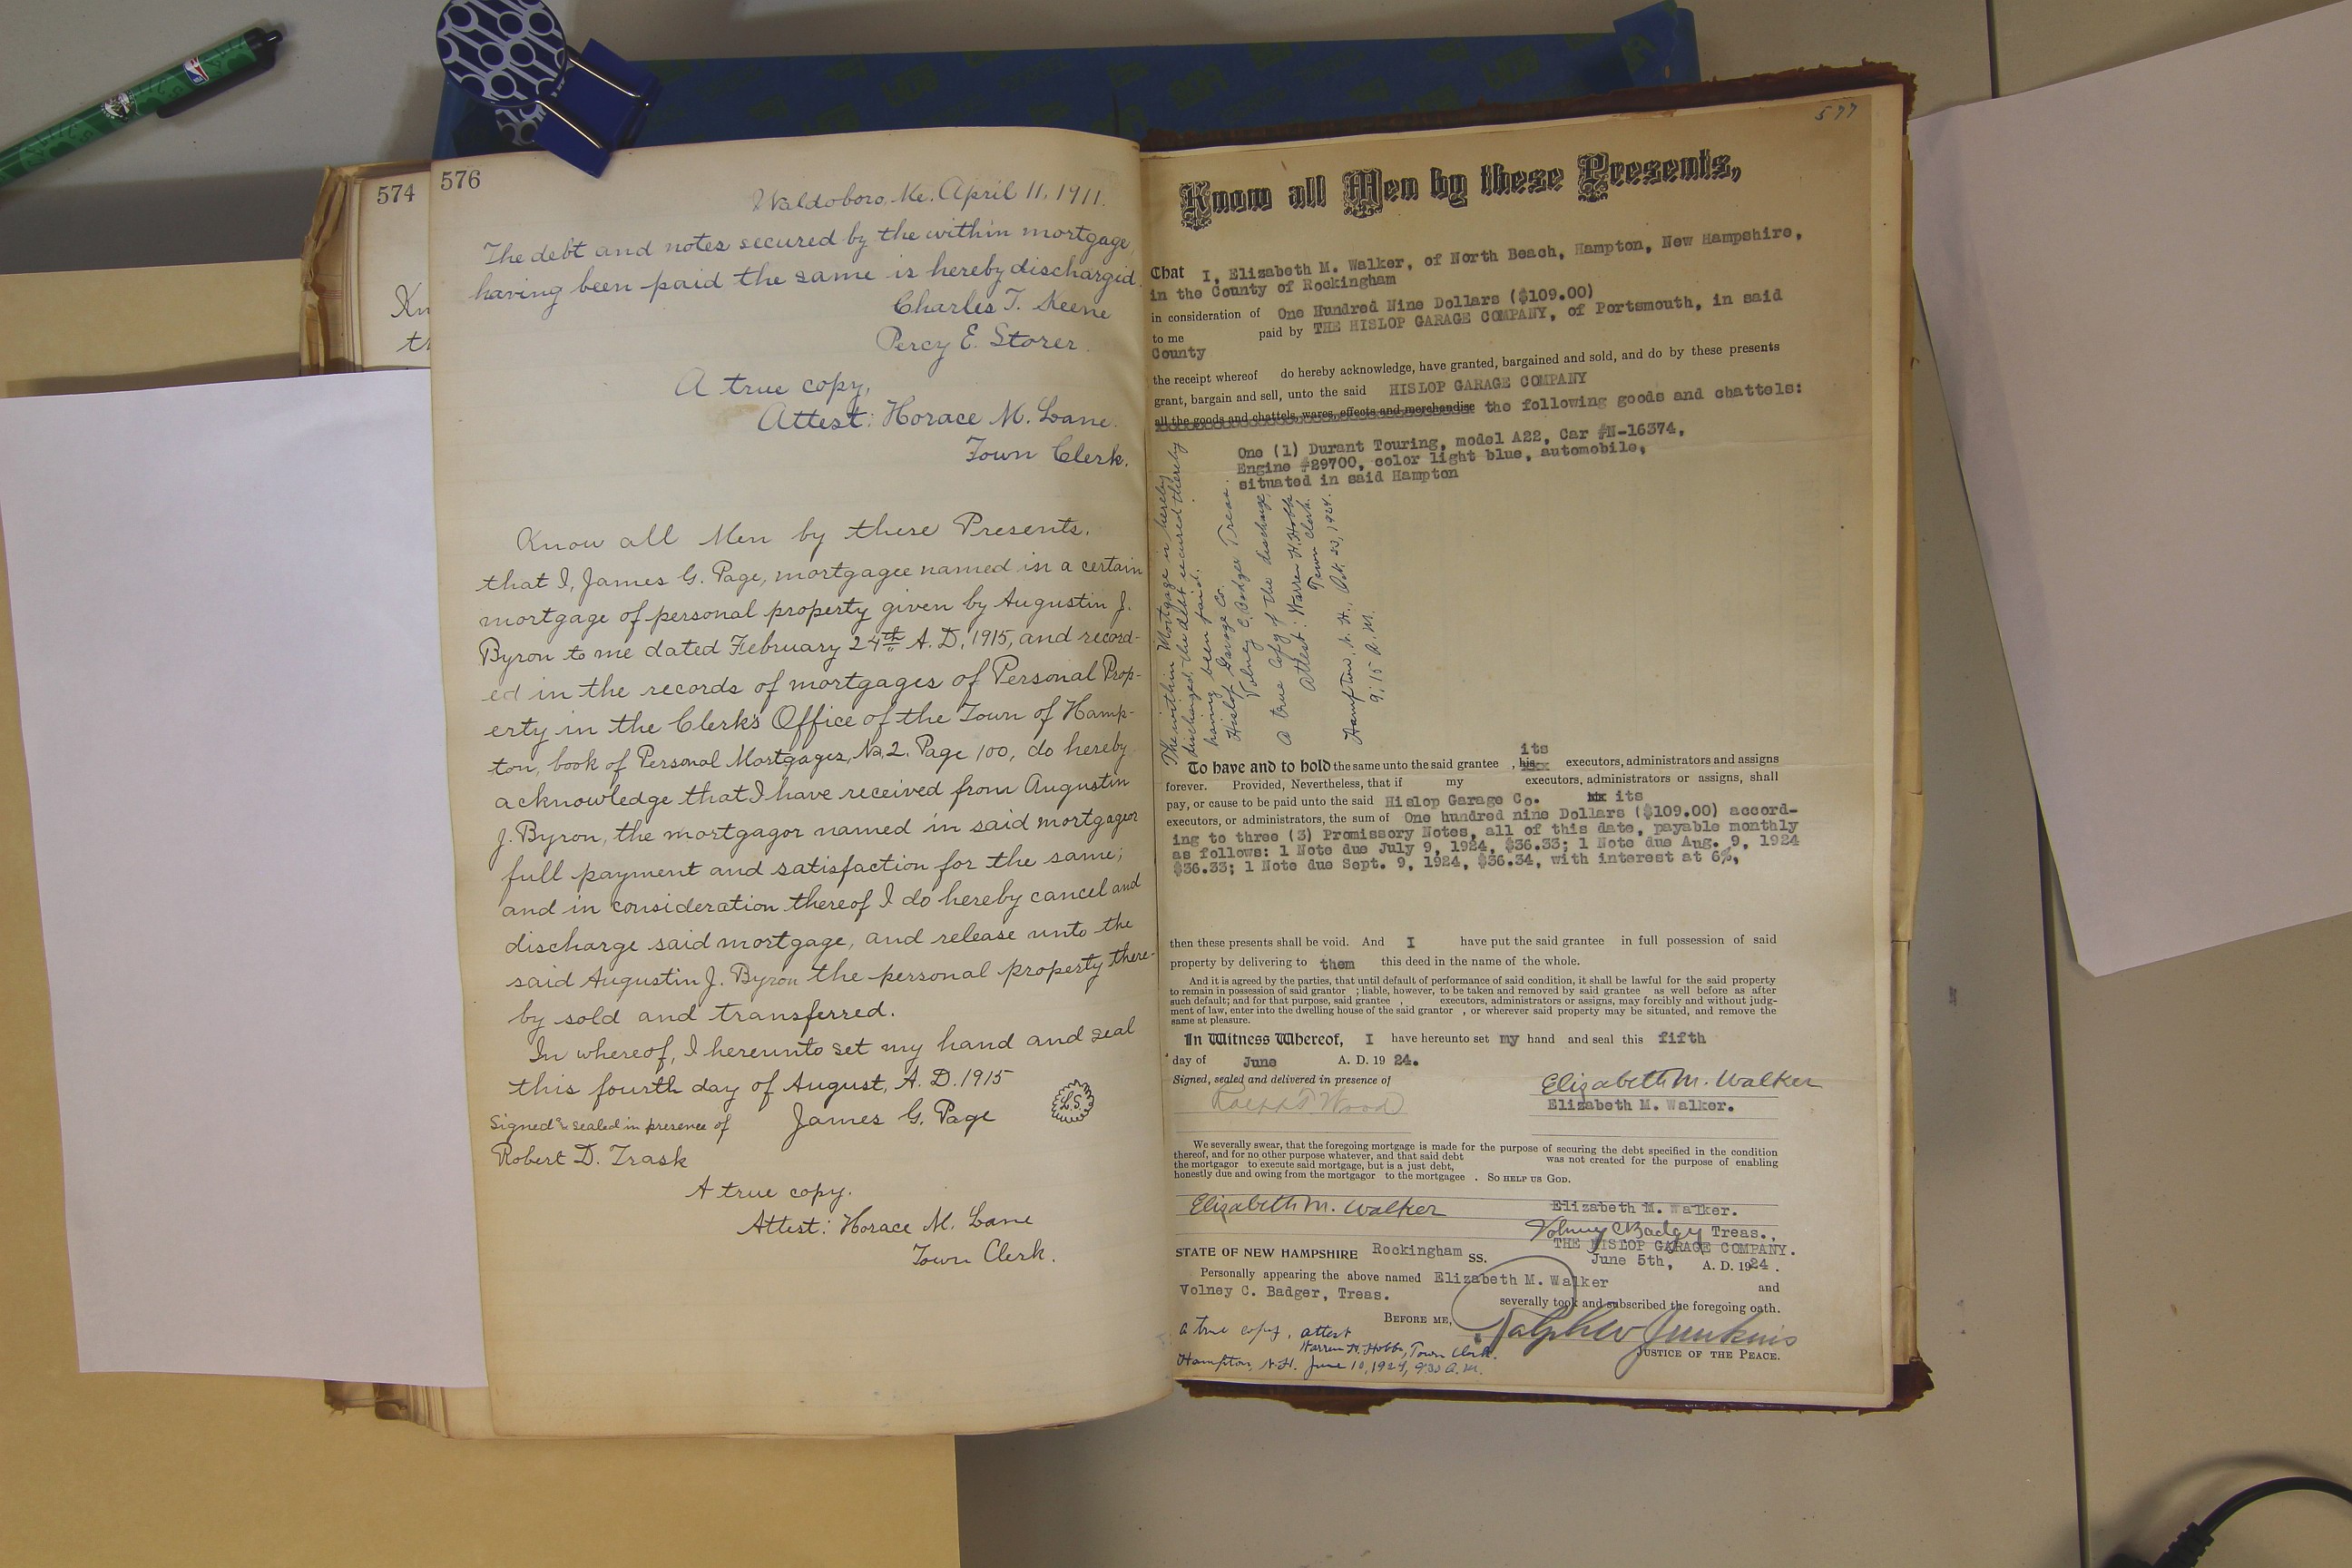 574
Kn
th
576
Waldoboro, Me. April 11, 1911.
The debt and notes secured by the within mortgage
having been paid the same is hereby discharged.
Charles T. Keene
Percy E. Storer.
A true copy,
Attest: Horace M. Lane.
Town Clerk.
Know all Men by these Presents.
that I, James G. Page, mortgagee named in a certain
mortgage of personal property given by Augustin J.
Byron to me dated February 24th A. D. 1915, and record-
ed in the records of mortgages of Personal Prop-
erty in the Clerk's Office of the Town of Hamp-
ton, book of Personal Mortgages, No. 2. Page 100, do hereby
acknowledge that I have received from Augustin
J. Byron, the mortgagor named in said mortgages
full payment and satisfaction for the same;
and in consideration thereof I do hereby cancel and
discharge said mortgage, and release unto the
said Augustin J. Byron the personal property there-
by sold and transferred.
In whereof, I hereunto set my hand and seal
this fourth day of August, A. D. 1915
Signed & sealed in presence of James G. Page L.S.
Robert D. Trask
A true copy.
Attest: Horace M. Lane
Town Clerk.
577
Know all Men by these Presents,
That I, Elizabeth M. Walker, of North Beach, Hampton, New Hampshire,
in the County of Rockingham
in consideration of One Hundred Nine Dollars ($109.00)
to me paid by THE HISLOP GARAGE COMPANY, of Portsmouth, in said
County
the receipt whereof do hereby acknowledge, have granted, bargained and sold, and do by these presents
grant, bargain and sell, unto the said HISLOP GARAGE COMPANY
all the goods and chattels, wares, effects and merchandise the following goods and chattels:
One (1) Durant Touring, model A22, Car #N-16374,
Engine #29700, color light blue, automobile,
situated in said Hampton
The within Mortgage is hereby
discharged, the debt secured thereby
having been paid.
Hislop Garage Co.
Volney C. Badger Treas.
A true copy of the discharge
Attest: Warren H. Hobbs
Town Clerk.
Hampton, N. H., Oct. 23, 1924.
9:15 A.M.
its
To have and to hold the same unto the said grantee , his executors, administrators and assigns
forever. Provided, Nevertheless, that if my executors, administrators or assigns, shall
pay, or cause to be paid unto the said Hislop Garage Co. its
executors, or administrators, the sum of One hundred nine Dollars ($109.00) accord-
ing to three (3) Promissory Notes, all of this date, payable monthly
as follows: 1 Note due July 9, 1924, $36.33; 1 Note due Aug. 9, 1924
$36.33; 1 Note due Sept. 9, 1924, $36.34, with interest at 6%,
then these presents shall be void. And I have put the said grantee in full possession of said
property by delivering to them this deed in the name of the whole.
And it is agreed by the parties, that until default of performance of said condition, it shall be lawful for the said property
to remain in possession of said grantor ; liable, however, to be taken and removed by said grantee as well before as after
such default; and for that purpose, said grantee , executors, administrators or assigns, may forcibly and without judg-
ment of law, enter into the dwelling house of the said grantor , or wherever said property may be situated, and remove the
same at pleasure.
In Witness Whereof, I have hereunto set my hand and seal this fifth
day of June A. D. 19 24.
Signed, sealed and delivered in presence of
Elizabeth M. Walker
Elizabeth M. Walker.
We severally swear, that the foregoing mortgage is made for the purpose of securing the debt specified in the condition
thereof, and for no other purpose whatever, and that said debt was not created for the purpose of enabling
the mortgagor to execute said mortgage, but is a just debt,
honestly due and owing from the mortgagor to the mortgagee . SO HELP US GOD.
Elizabeth M. Walker Elizabeth M. Walker.
Volney C Badger Treas.,
THE HISLOP GARAGE COMPANY.
STATE OF NEW HAMPSHIRE Rockingham SS. June 5th, A. D. 1924.
Personally appearing the above named Elizabeth M. Walker and
Volney C. Badger, Treas. severally took and subscribed the foregoing oath.
BEFORE ME,
JUSTICE OF THE PEACE.
A true copy, attest
Warren H. Hobbs, Town Clerk.
Hampton, N.H. June 10, 1924, 9:30 A.M.